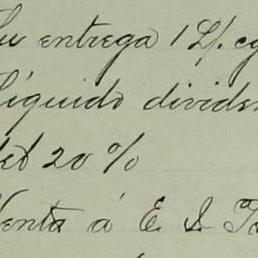 Su entrega 1 L/. c
Líquido divide
del 20 %
Venta á E. I. F